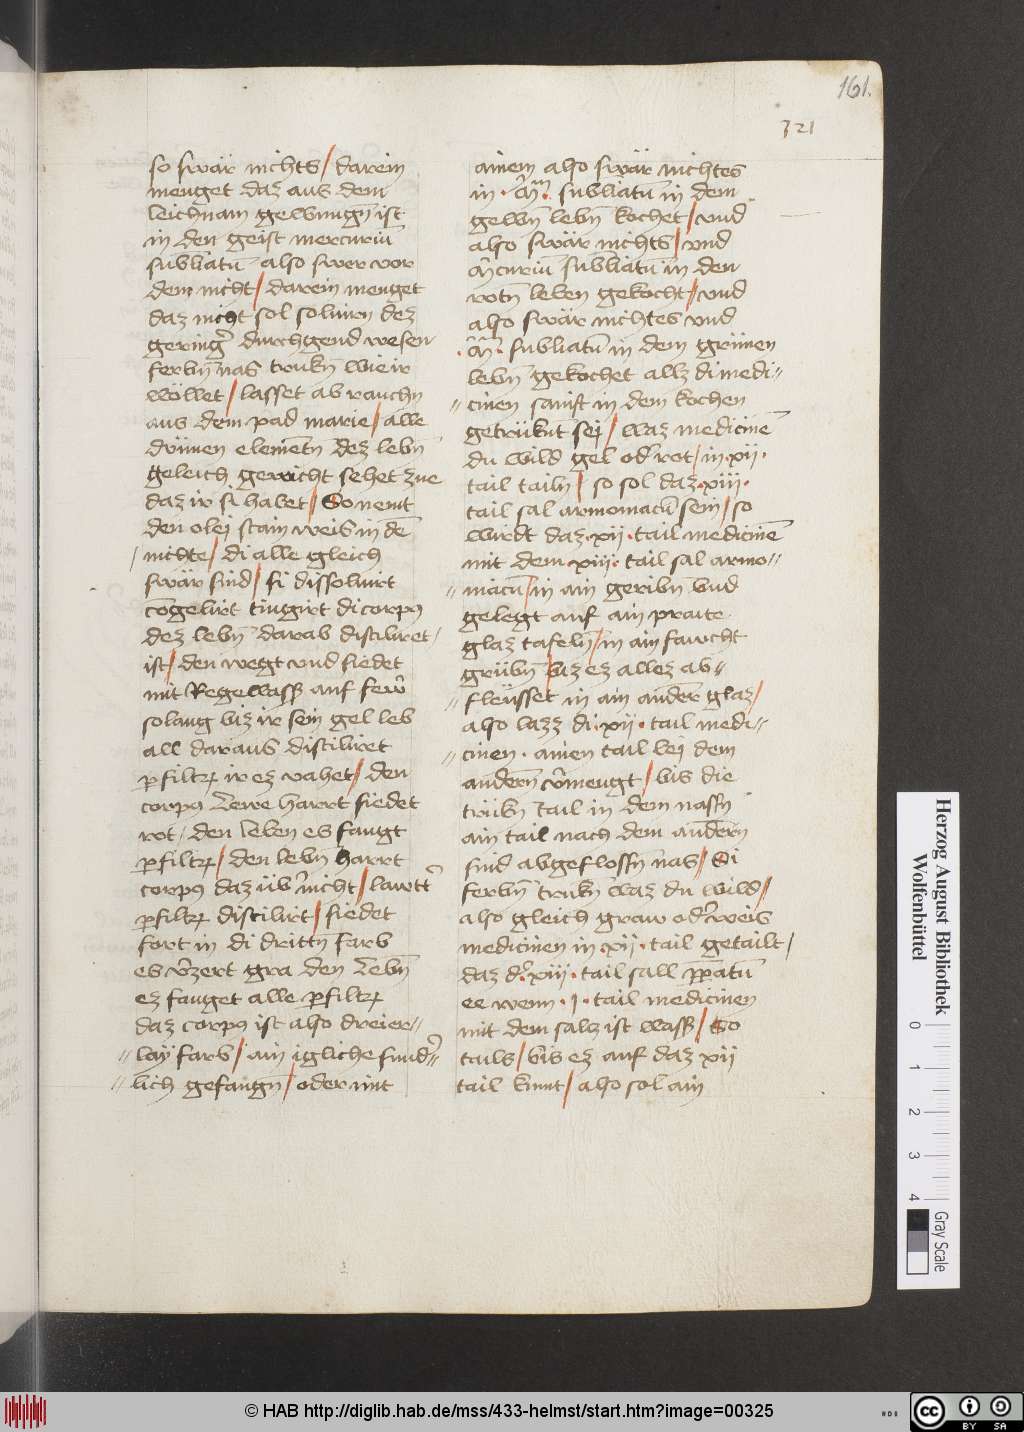 161.
321
so swär nichts / darein
menget daz aus dem
leichnam gewnnugn̄ ist
in den geist mercuriū
sublīatū also swer vor
dem nicht / darein menget
daz nicht sol solvirn dez
gering̉ durchgend wesen
ferbn̄ nas trukn̄ wie ir
wöllet / lasset ab rauchn
aus dem pad marie / alle
dv̈nnen elemētn dez lebn̄
geleich gericht sehet zue
daz ir si habet / So nemt
den olei stain weis in dē
nichte / di alle gleich
swär sind / si dissolvirt
cōgelirt tingirt di corpꝰ
dez lebn̄ darab distiliret
ist / den wegt vnd siedet
mit Regewassß auf fewr̄
solang biz ir sein gel leb
all daraus distiliret
ꝑ filtrꝝ ir ez vahet / den
corpꝰ Lewe harrt siedet
rot / den leben es faugt
ꝑ filtrꝝ / den lebn̄ harrt
corpꝰ daz üb̉ nicht / lawtt̉
ꝑ filtrꝝ distilirt / siedet
fort in di drittn̄ farb
es v̉zert gra den Lebn̄
ez fauget alle ꝑ filtrꝝ
daz corpꝰ ist also dreier//
// lay farb / ain igliche sund̉//
// lich gefangn̄ / oder mit
ainem also swär nichtes
in · m̉ᵐ · sublīatū in dem
gewn̄ lebn̄ kochet / vnd
also swär nichts / vnd
m̉curiū sublīatū in den
rotn̄ leben gekocht / vnd
also swär nichtes vnd
· m̉ᵐ · sublīatū in dem grünen
lebn̄ gekochet allz di medi//
// cinen sanft in dem kochen
getrüknt sej / waz medicinē
du wild gel od̉ rot / in · xij ·
tail tailn / so sol daz · xiij ·
tail sal armoniacū sein / so
wirdt daz · xij · tail medicinē
mit dem · xiij · tail sal armo//
// niacū / in ain geribn̄ vnd
gelegt auf ain praite
glaz tafeln̄ / in ain fawcht
grübn̄ biz ez allez ab//
// fleüsset in ain andern glaz /
also lazz di · xij · tail medi//
// cinen · ainen tail bej dem
andern v̉mengt / bis die
trükn̄ tail in dem nassn̄
ain tail nach dem andern
sind abgeflossn̄ nas / Di
ferbn̄ trukn̄ waz du wild //
also gleich graw od̉ weis
medicinen in · xij · tail getailt /
daz d̉ · xiij · tail sall p̄patū
ee wenn · j · tail medicinen
mit dem salz ist wassß / So
tails / bis ez auf daz xij
tail kumt / also sol ain
Herzog August Bibliothek
Wolfenbüttel
0 1 2 3 4
Gray Scale
© HAB http://diglib.hab.de/mss/433-helmst/start.htm?image=00325
HAB
cc BY SA